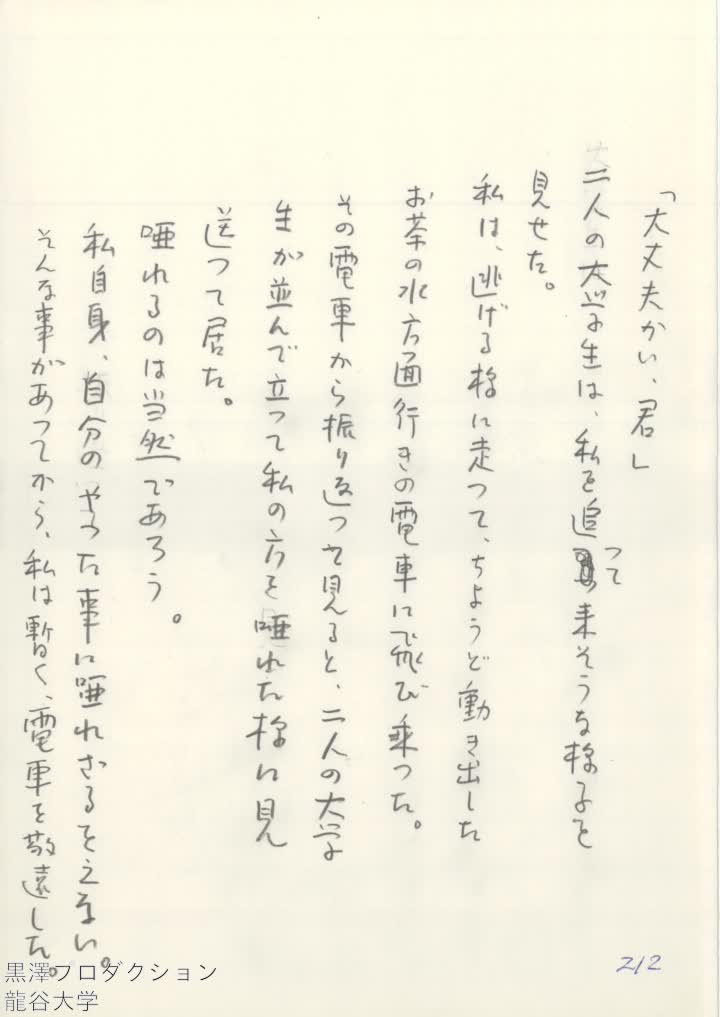 「大丈夫かい、君」
二人の大学生は、私を追って来そうな様子を
見せた。
私は、逃げる様に走つて、ちようど動き出した
お茶の水方面行きの電車に飛び乗つた。
その電車から振り返つて見ると、二人の大学
生が並んで立つて私の方を唖れた様に見
送つて居た。
唖れるのは当然であろう。
私自身、自分のやつた事に唖れざるをえない。
そんな事があつてから、私は暫く、電車を敬遠した。
212
黒澤プロダクション
龍谷大学